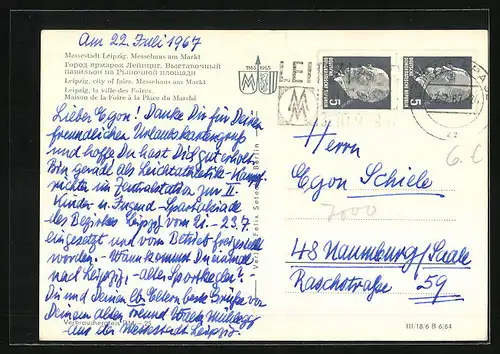 Am 22. Juli 1967
Messestadt Leipzig. Messehaus am Markt
Город ярмарок Лейпциг. Выставочный
павильон на Рыночной площади
Leipzig, city of fairs. Messehaus am Markt
Leipzig, la ville des Foires.
Maison de la Foire à la Place du Marché
Lieber Egon! Danke Dir für Deinen
freundlichen Urlaubskartengruß
und hoffe Du hast Dich gut erholt.
Bin gerade als Leichtathletik-Kampf-
richter im Zentralstadion zur II.
Kinder- u. Jugend-Spartakiade
des Bezirkes Leipzig vom 21.-23.7.
eingesetzt und vom Betrieb freigestellt
worden. - Wann kommst Du einmal
nach Leipzig, - alter Sportkegler?
Du und Deinen lb. Eltern herzl. Grüße von
Deinem alten Freund
aus der Messestadt Leipzig.
Verlag Felix Setecki, Berlin
1165 1965
MM
LEI
5
5
Herrn
Egon Schiele
7000
6.-
48 Naumburg/Saale
Raschstraße 59
III/18/6 B 6/64